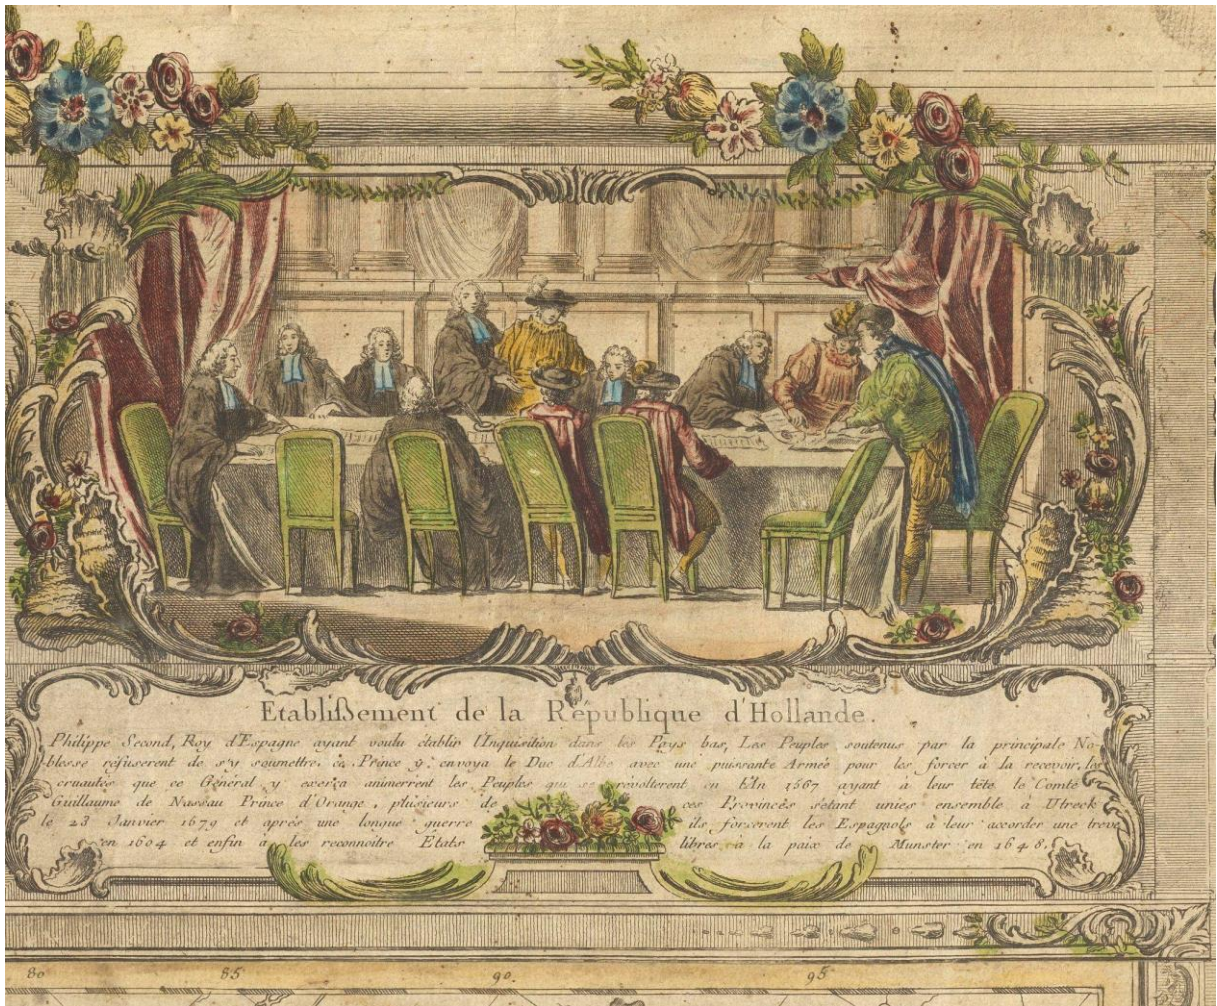 Etablißement de la République d'Hollande.
Philippe Second, Roy d'Espagne ayant voulu établir l'Inquisition dans les Pays bas, Les Peuples soutenus par la principale No-
blesse réfuserent de s'y soumettre, ce Prince y envoya le Duc d'Albe avec une puissante Armeé pour les forcer à la recevoir, les
cruautés que ce Général y exerça animerrent les Peuples qui se révolterent en l'An 1567 ayant à leur tête le Comte
Guillaume de Nassau Prince d'Orange, plusieurs de ces Provinces s'étant unies ensemble à Utreck
le 23 Janvier 1679 et aprés une longue guerre ils forserent les Espagnols à leur accorder une treve
en 1604 et enfin à les reconnoitre Etats libres à la paix de Munster en 1648.
80 85 90 95